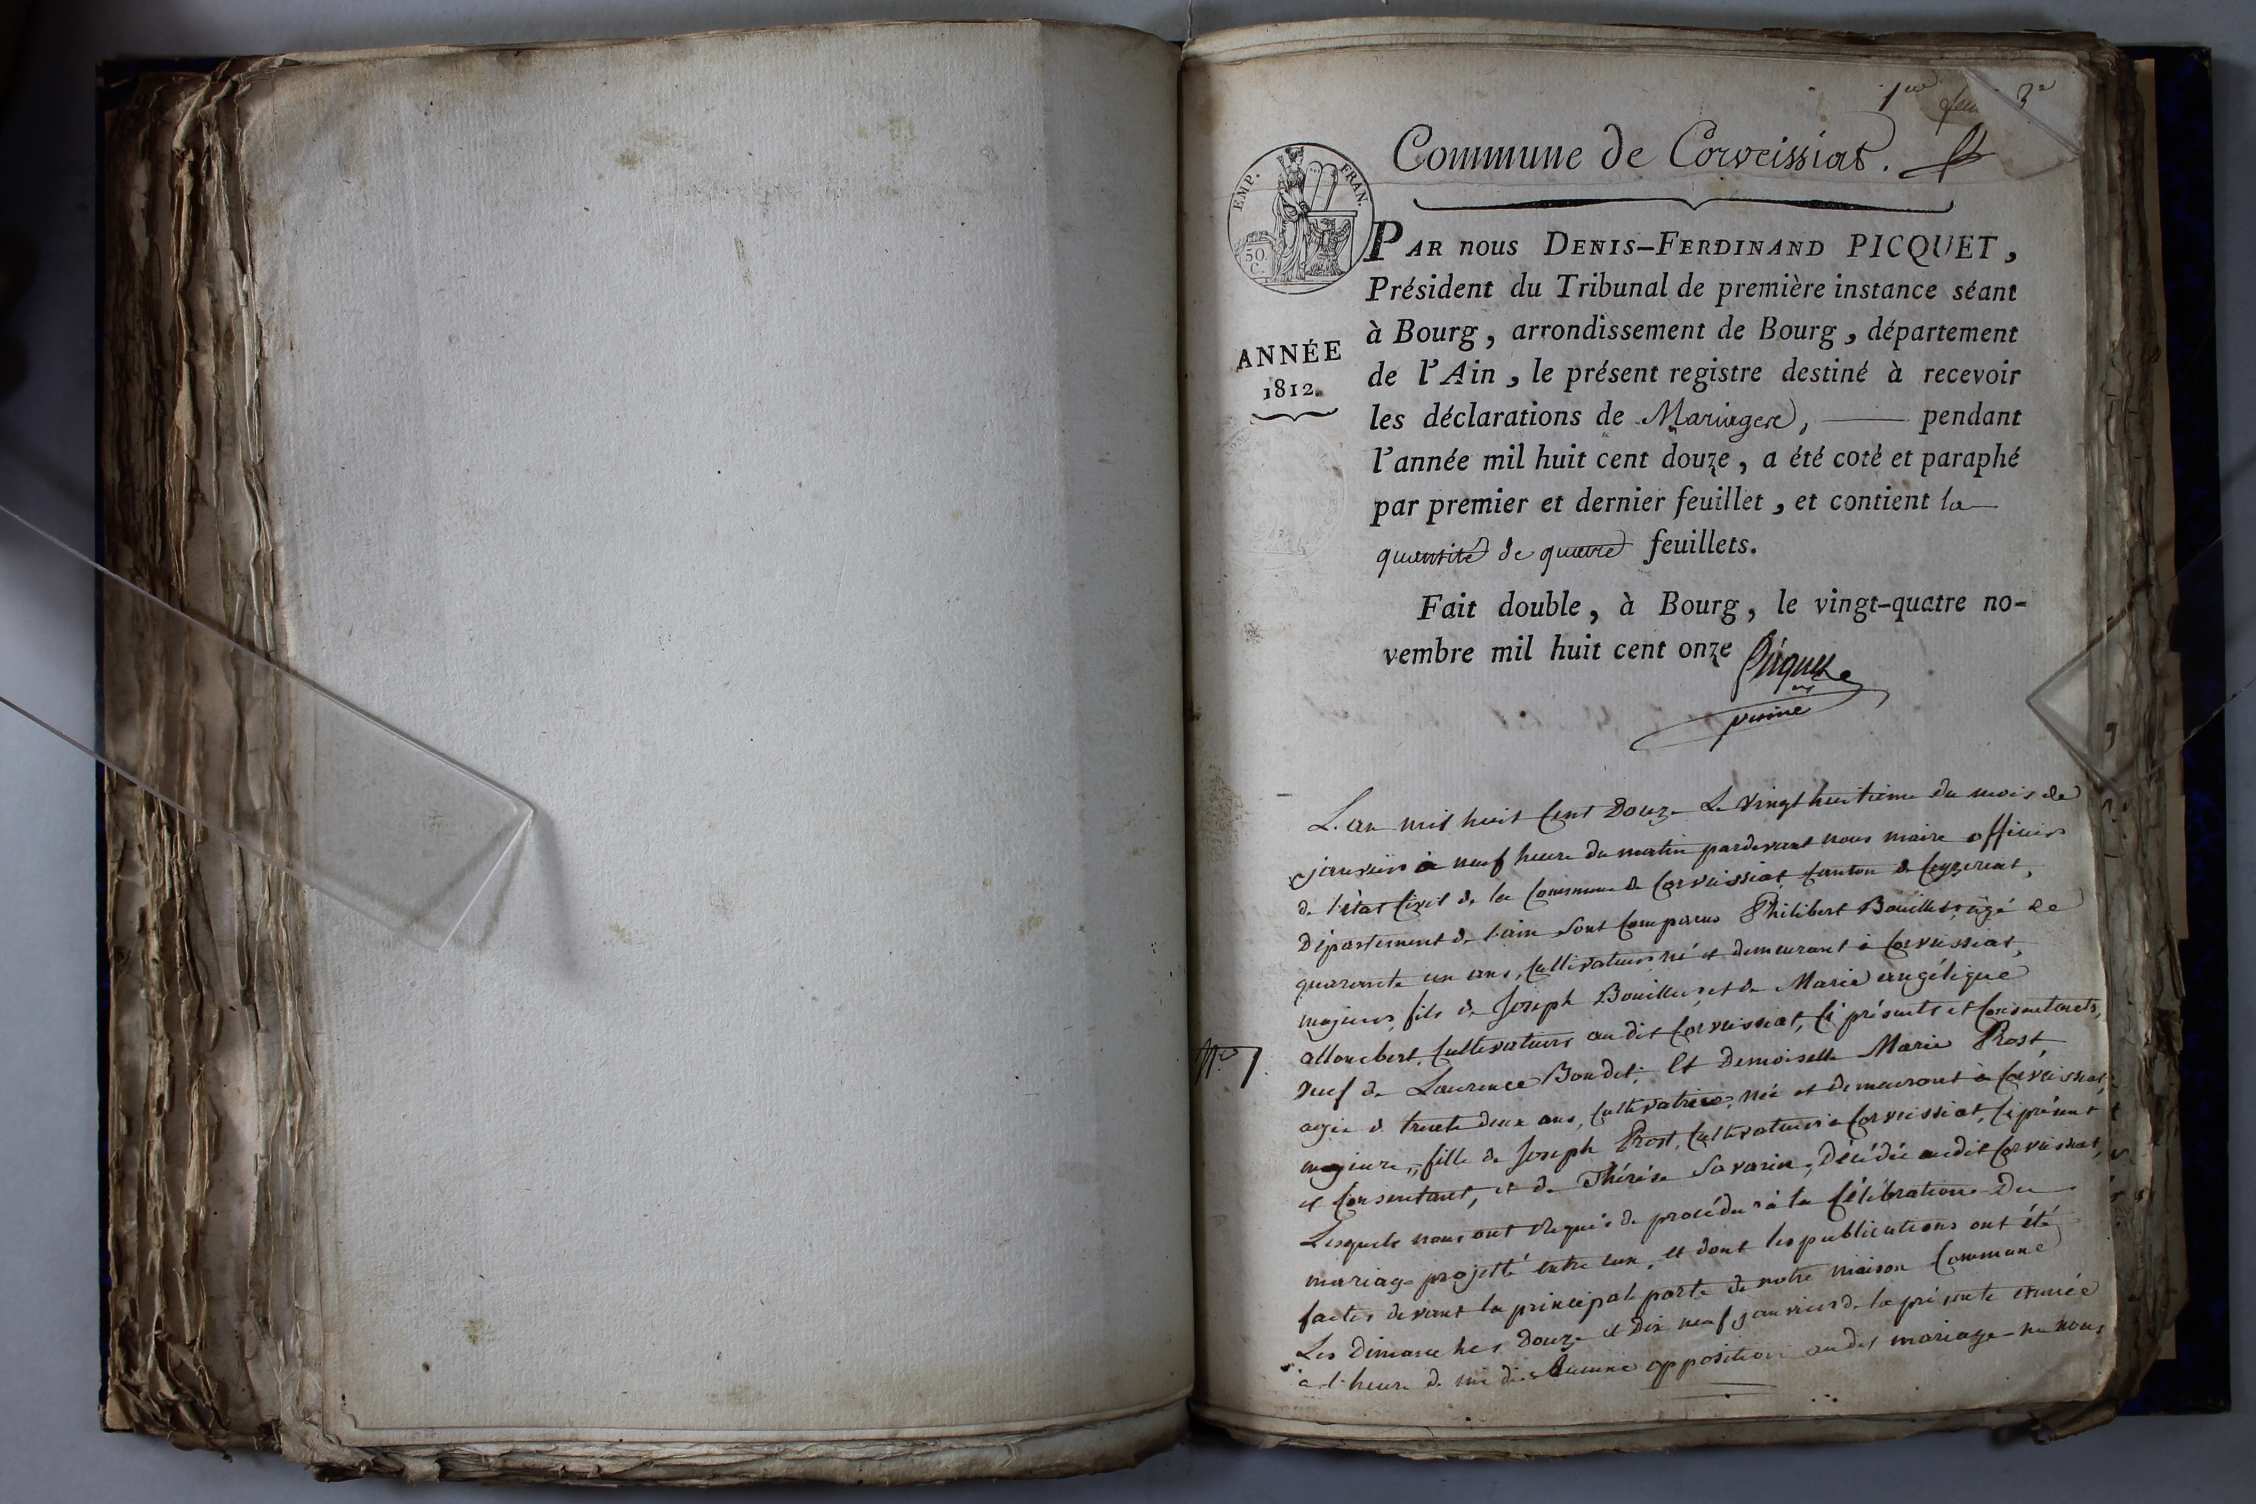 1er feuillet
Commune de Corveissiat.
EMP. FRAN.
50. C.
PAR nous DENIS-FERDINAND PICQUET,
Président du Tribunal de première instance séant
à Bourg, arrondissement de Bourg, département
de l'Ain, le présent registre destiné à recevoir
les déclarations de Mariages, pendant
l'année mil huit cent douze, a été coté et paraphé
par premier et dernier feuillet, et contient la
quantité de quatre feuillets.
ANNÉE
1812.
Fait double, à Bourg, le vingt-quatre no-
vembre mil huit cent onze
Picquet
L'an mil huit Cent Douze Le vingt huitieme du mois de
janvier à neuf heure du matin pardevant nous maire officier
de l'état Civil de la Commune de Corveissiat, Canton de Ceyzeriat,
Département de l'ain sont Comparus Philibert Bouillet, agé de
quarante un ans, Cultivateur né et demeurant à Corveissiat,
majeur, fils de Joseph Bouillet et de Marie angélique
allombert, Cultivateurs audit Corveissiat, Ci présents et Consentants,
veuf de Laurence Bondet; Et Demoiselle Marie Prost
agée de trente deux ans, Cultivatrice, née et demeurant à Corveissiat,
majeure, fille de Joseph Prost, Cultivateur à Corveissiat, Ci présent
et Consentant, et de Thérèse Savarin, Décédée audit Corveissiat,
N.o 1.
Lesquels nous ont requis de procéder à la Célébration du
mariage projetté entre eux, et dont les publications ont été
faites devant la principale porte de notre maison Commune
Les Dimanches Douze et Dix neuf janvier de la présente année
a l'heure de midi. Aucune opposition audit mariage ne nous